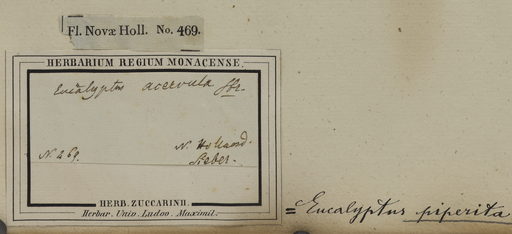 Fl. Novæ Holl. No. 469.
HERBARIUM REGIUM MONACENSE.
Eucalyptus acervula Sbr.
N. Holland.
N. 469.
Sieber.
HERB. ZUCCARINII.
Herbar. Univ. Ludov. Maximil.
= Eucalyptus piperita